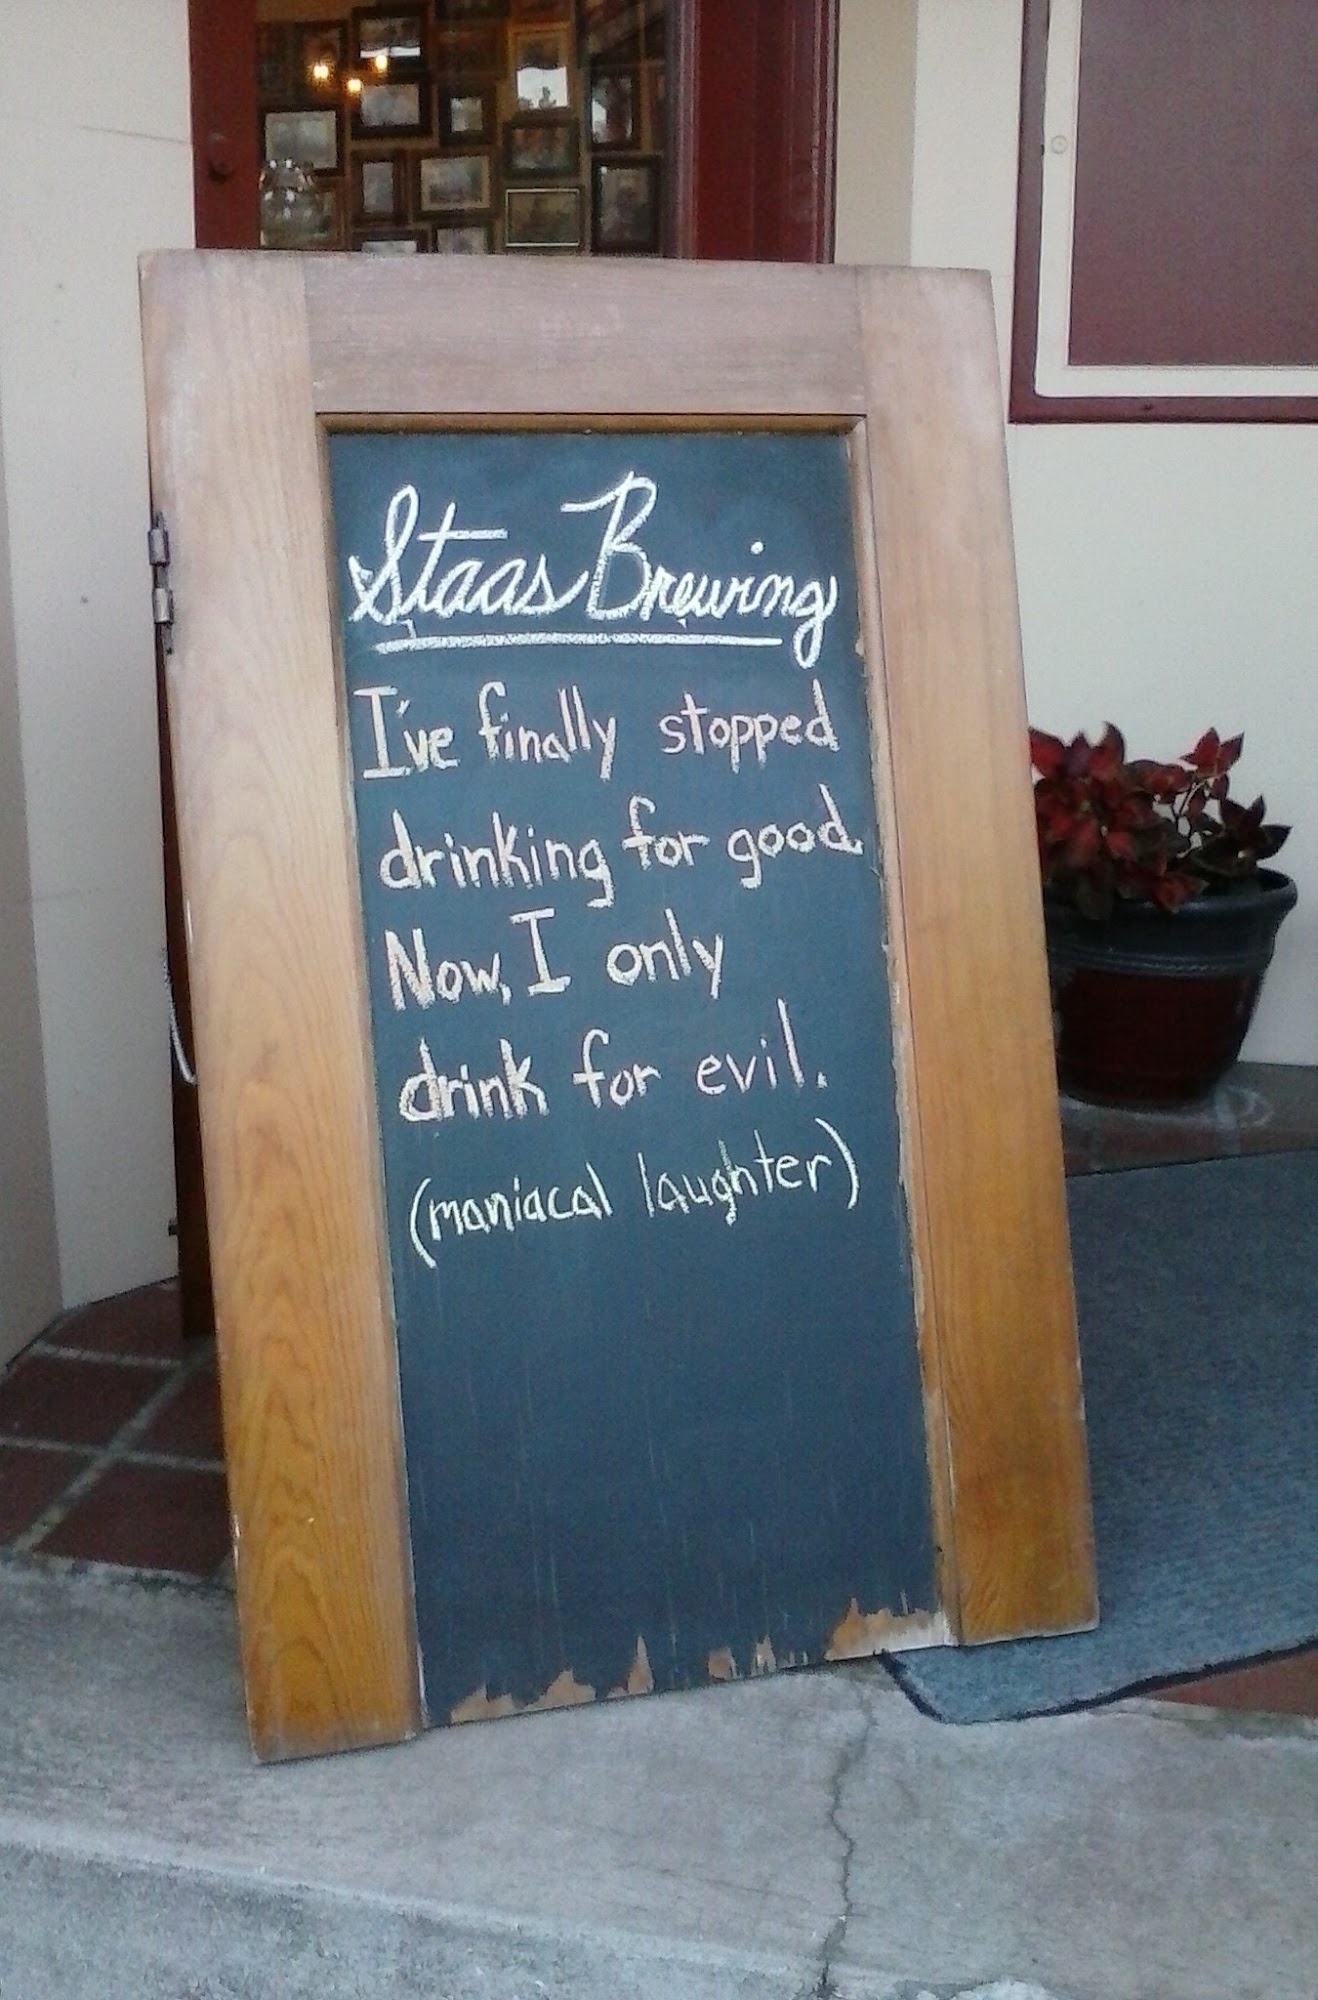 Staas Brewing
I've finally stopped
drinking for good.
Now, I only
drink for evil.
(maniacal laughter)